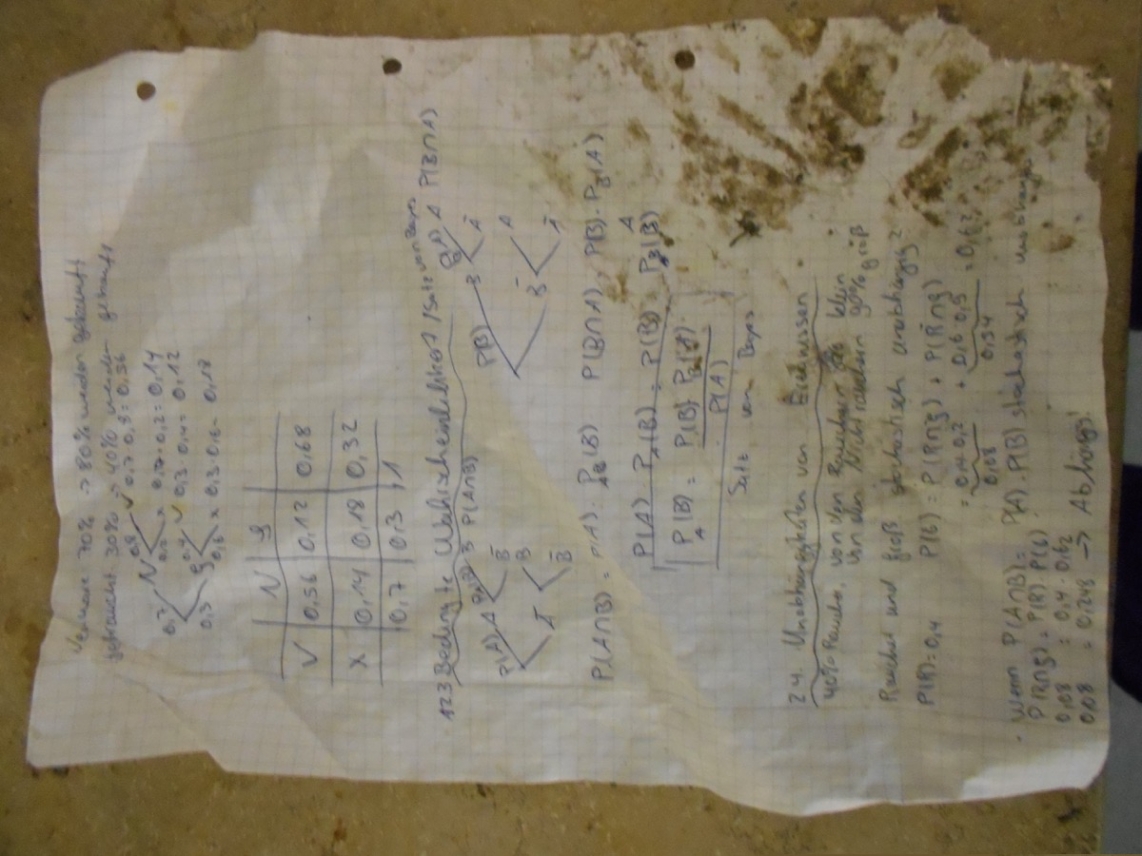 70% → 80% wieder gekauft
gebraucht 30% → 40% wieder gekauft
0,7 N 0,8 ✓ 0,7·0,8 = 0,56
0,2 x 0,7·0,2 = 0,14
0,3 g 0,4 ✓ 0,3·0,4 = 0,12
0,6 x 0,3·0,6 = 0,18
N g
✓ 0,56 0,12 0,68
x 0,14 0,18 0,32
0,7 0,3 1
123 Bedingte Wahrscheinlichkeit / Satz von Bayes
P(A) A P_A(B) B P(A∩B)
B̄
Ā B
B̄
P(B) B P_B(A) A P(B∩A)
Ā
B̄ A
Ā
P(A∩B) = P(A) · P_A(B) P(B∩A) = P(B) · P_B(A)
P(A) · P_A(B) = P(B) · P_B(A)
P_A(B) = P(B) · P_B(A) / P(A)
Satz von Bayes
24. Unabhängigkeiten von Ereignissen
40% Raucher, von den Rauchern klein
von den Nichtrauchern 90% groß
Raucher und groß stochastisch unabhängig?
P(R) = 0,4 P(G) = P(R∩g) + P(R̄∩g)
= 0,4·0,2 + 0,6·0,9 = 0,62
0,08 0,54
· Wenn P(A∩B) = P(A)·P(B) stochastisch unabhängig
P(R∩g) = P(R)·P(G)
0,08 = 0,4·0,62
0,08 = 0,248 → Abhängig!